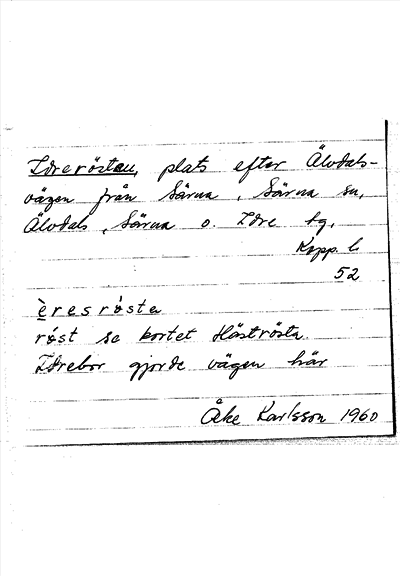 Idreröstan, plats efter Älvdals-
vägen från Särna, Särna sn,
Älvdals, Särna o. Idre tg,
Kopp. l.
52
èresrǿsta
rǿst se kortet Höströsta.
Idrebor gjorde vägen här
Åke Karlsson 1960